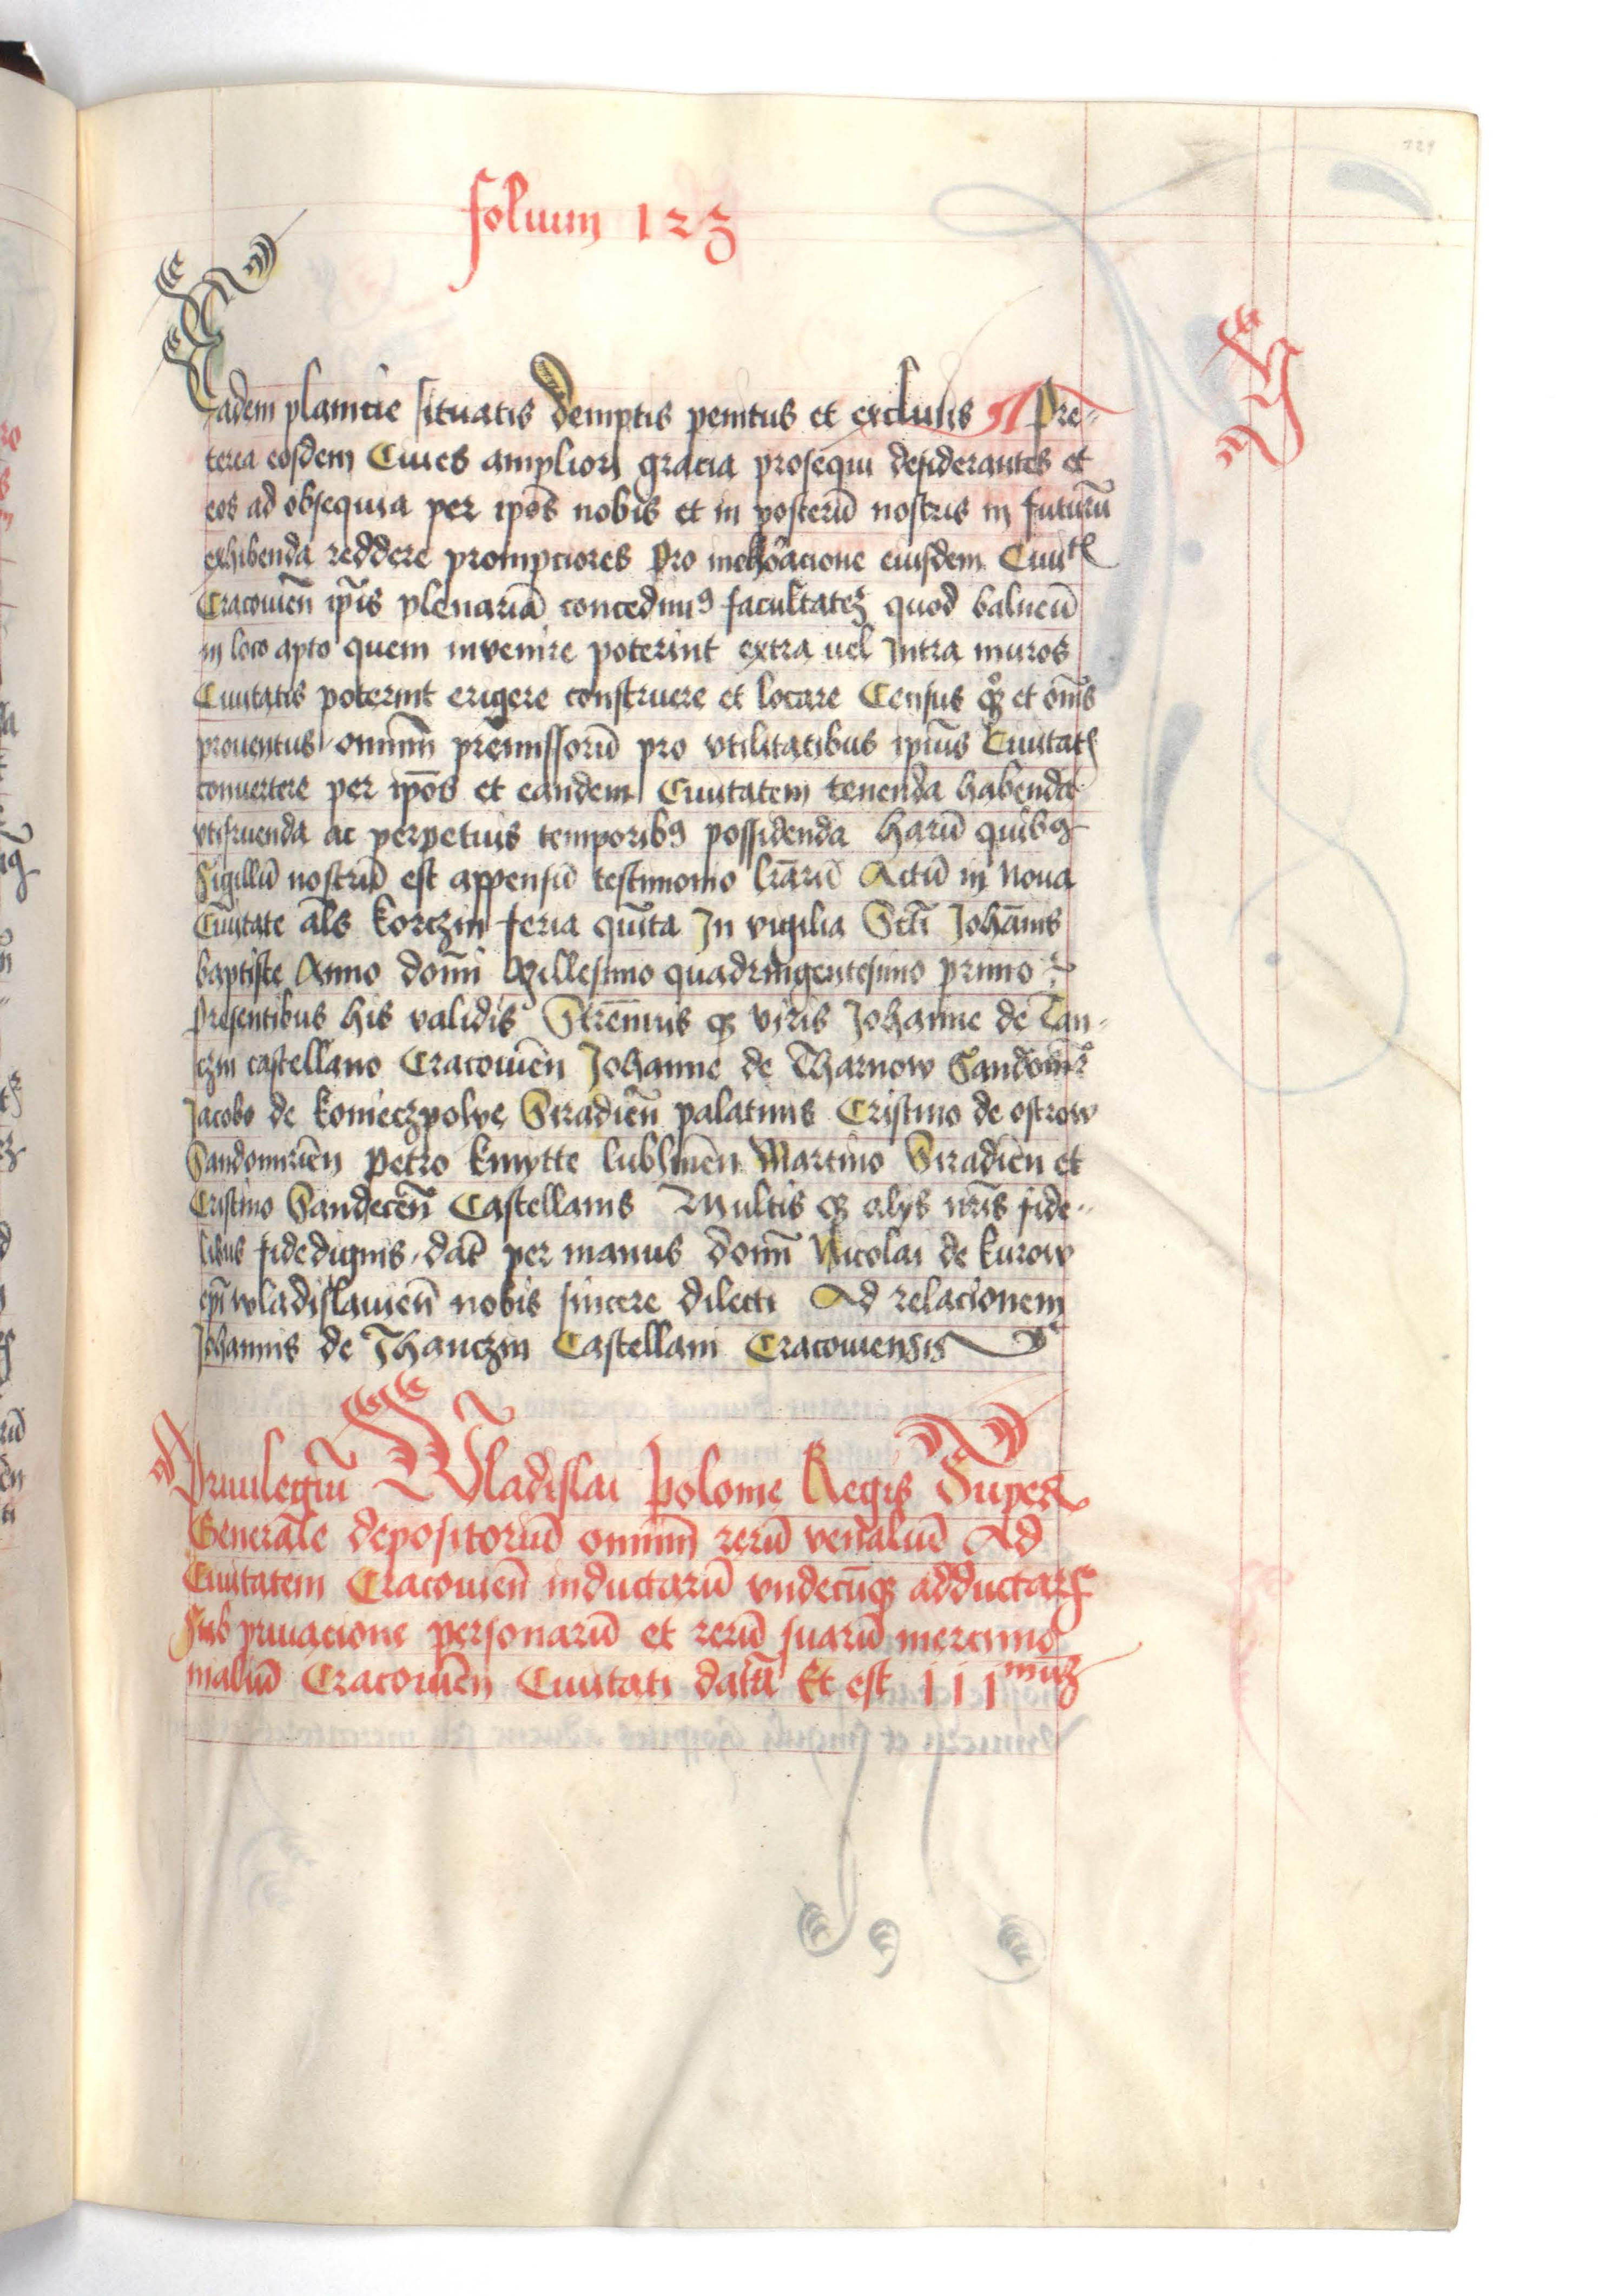 folium 123
129
Eadem planicie situatis demptis penitus et exclusis ¶ Pre-
terea eosdem Ciues ampliori gracia prosequi desiderantes et
eos ad obsequia per ip̄os nobis et in posterū nostris in futurū
exhibenda reddere prompciores pro melioracione eiusdem Ciuit
Cracouien̄ ip̄is plenariā concedimꝰ facultatē quod balneū
in loco apto quem invenire poterint extra uel Intra muros
Ciuitatis poterint erigere construere et locare Census qꝫ et om̄s
prouentus omniū premissorū pro vtilitatibus ip̄ius Ciuitatꝭ
conuertere per ip̄os et eandem Ciuitatem tenenda habenda
vtifruenda ac perpetuis temporibꝰ possidenda Harū quibꝰ
Sigillū nostrū est appensū testimonio lr̄arū Actū in Noua
Ciuitate al̄s korczin feria quīta In vigilia Sc̄ti Joha̅nis
baptiste Anno domī Millesimo quadringentesimo primo
presentibus his validis Strēnuis qꝫ viris Johanne de Tan-
czin castellano Cracouien̄ Johanne de Tharnow Sandomir̄
Jacobo de konieczpolye Siradien̄ palatinis Cristino de ostrow
Sandomirien̄ Petro kmytte lublinen̄ Martino Siradien̄ et
Cristino Sandecen̄ Castellanis Multis qꝫ alys nr̄is fide-
libus fidedignis dat̄ per manus domī Nicolai de kurow
ep̄i wladislauien̄ nobis sincere dilecti Ad relacionem
Johannis de Thanczin Castellani Cracouiensis
Priuilegiū Wladislai polonie Regis Super
Generale depositoriū omniū rerū venaliū Ad
Ciuitatem Cracouien̄ inductarū vndecūqꝫ adductarꝝ
Sub priuacione personarū et rerū suarū mercimo
nialiū Cracouien̄ Ciuitati datū Et est 111mū